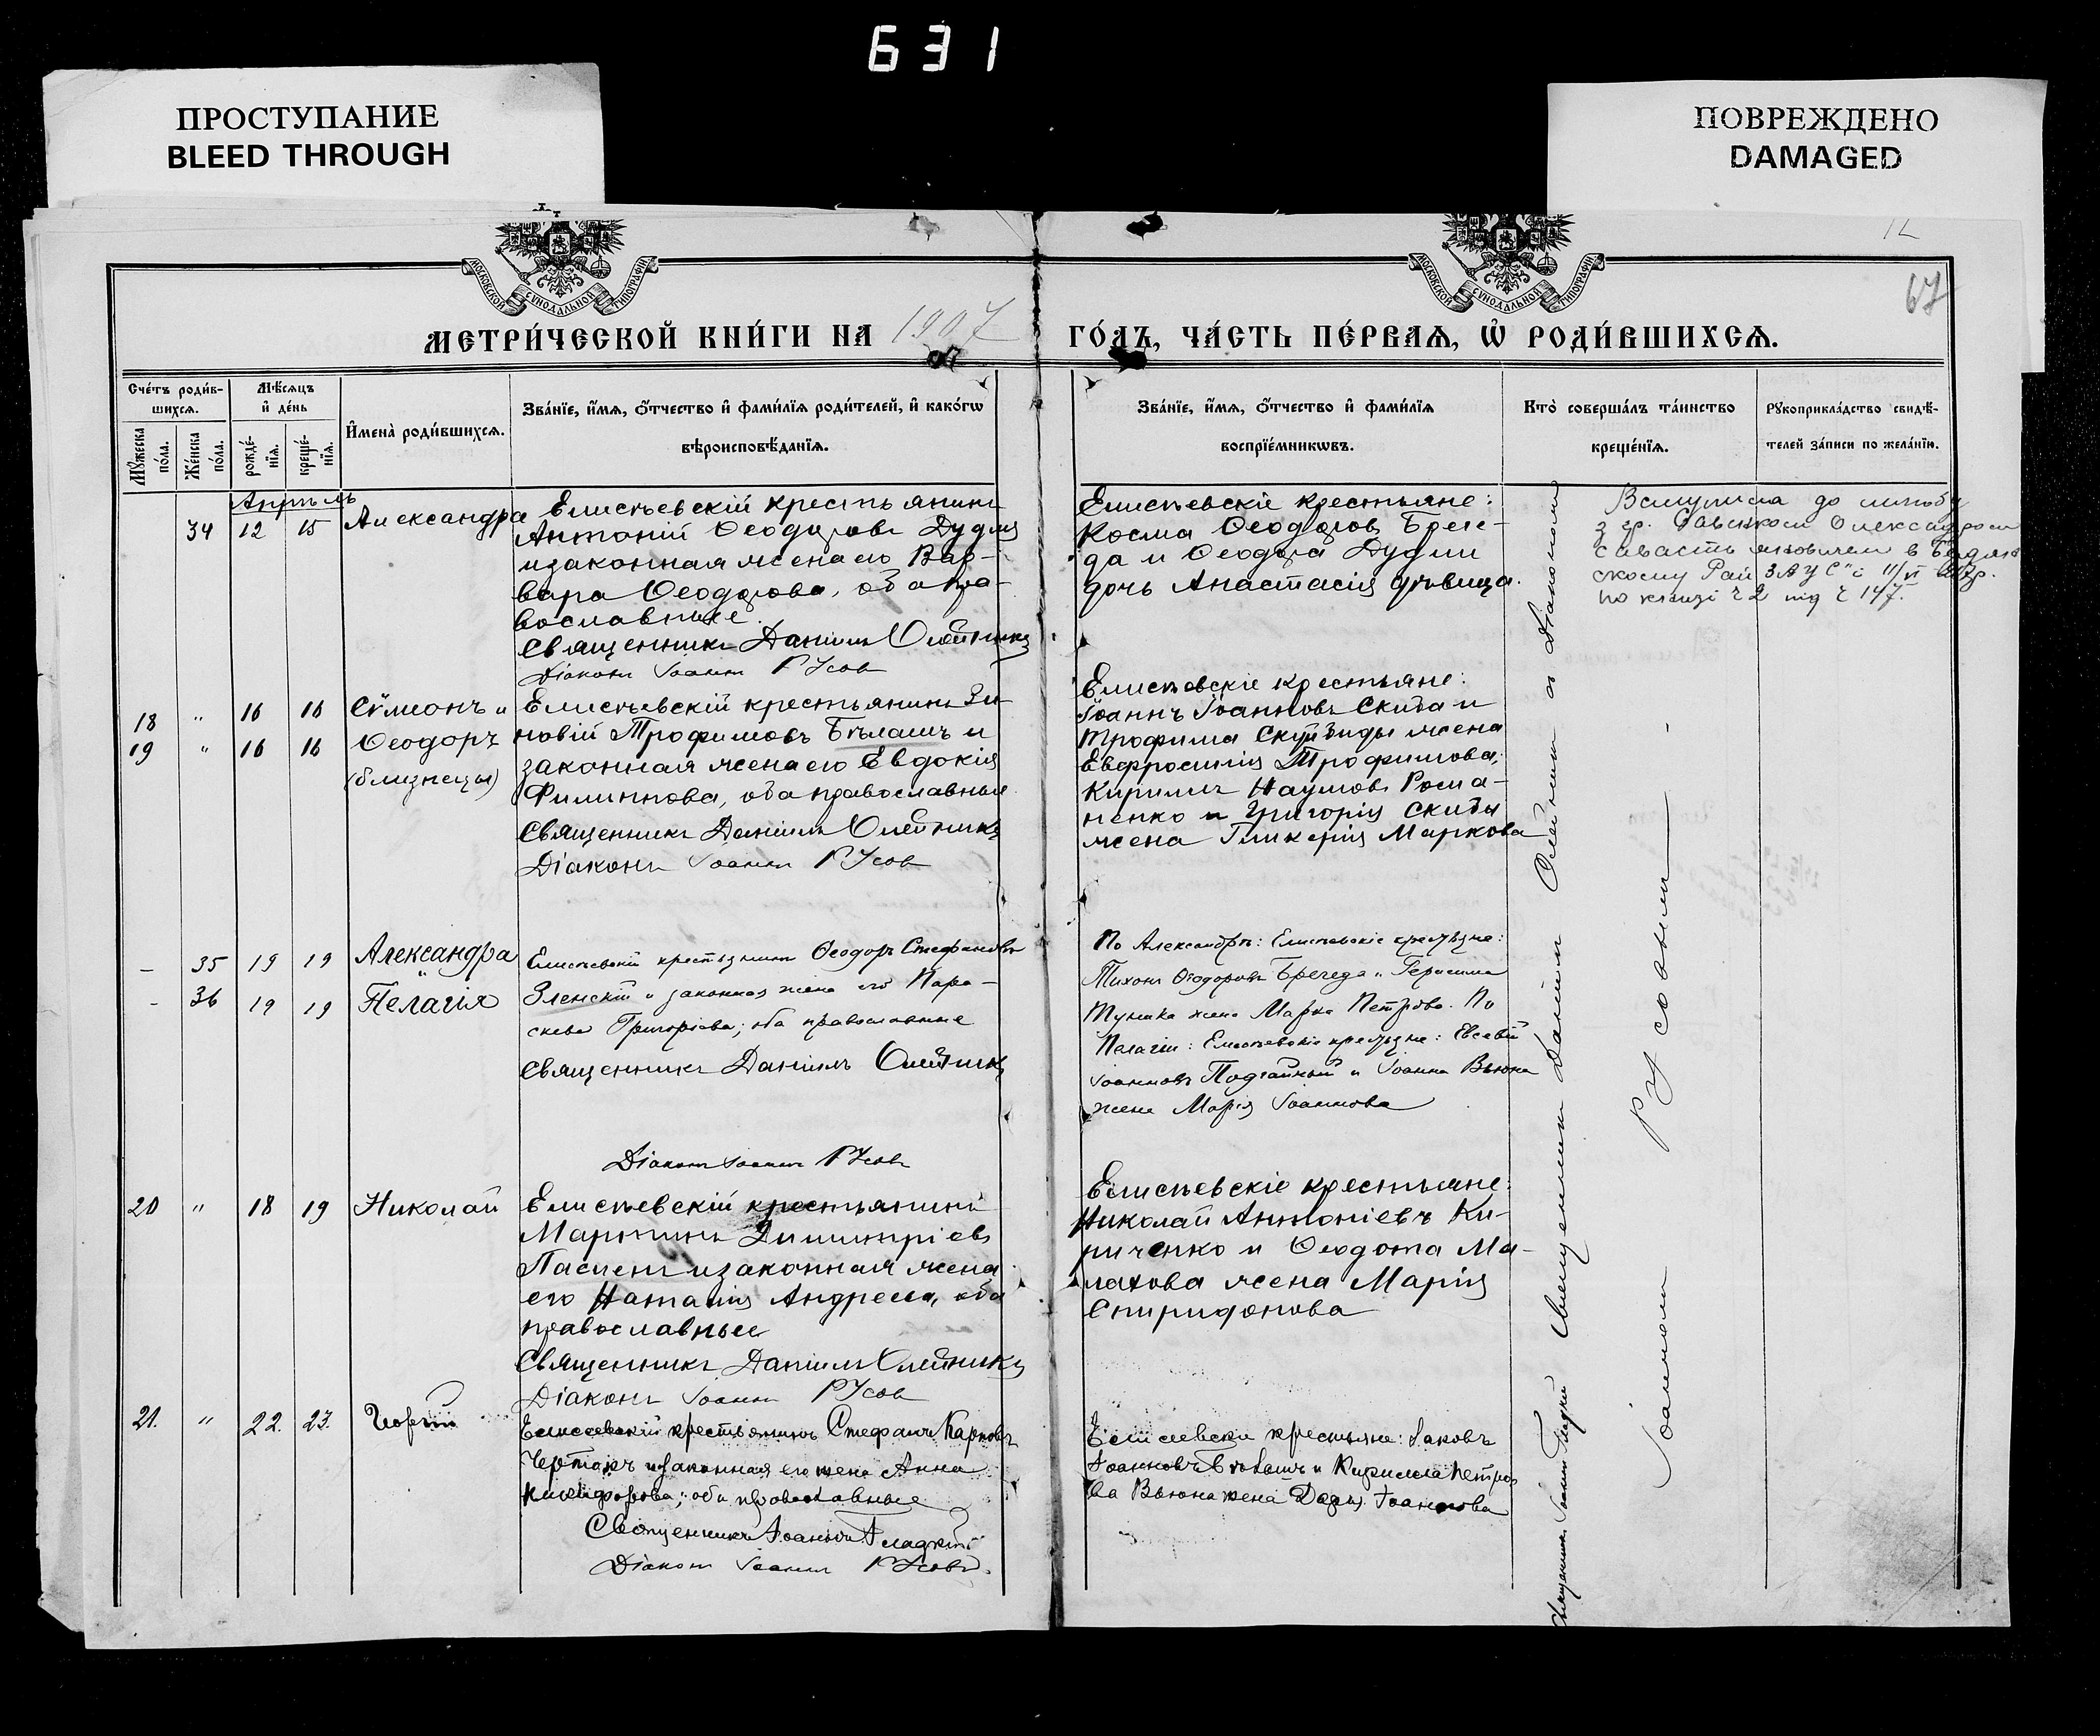 631
ПРОСТУПАНИЕ
BLEED THROUGH
ПОВРЕЖДЕНО
DAMAGED
МОСКОВСКОЙ СѴНОДАЛЬНОЙ ТИПОГРАФІИ
МОСКОВСКОЙ СѴНОДАЛЬНОЙ ТИПОГРАФІИ
67
МЕТРИ́ЧЕСКОЙ КНИ́ГИ НА 1907 ГО́ДЪ, ЧА́СТЬ ПЕ́РВАѦ, Ѡ҆ РОДИ́ВШИХСѦ.
Сче́тъ роди́в-
шихсѧ.
Мꙋ́жеска по́ла.
Же́нска по́ла.
Мѣ́сѧцъ
и҆ де́нь
рожде́-
нїѧ.
креще́-
нїѧ.
И҆мена̀ роди́вшихсѧ.
Зва́нїе, и҆́мѧ, о҆́тчество и҆ фами́лїѧ роди́телей, и҆ како́гѡ
вѣроисповѣ́данїѧ.
Зва́нїе, и҆́мѧ, о҆́тчество и҆ фами́лїѧ
воспрїе́мникѡвъ.
Кто̀ соверша́лъ та́инство
креще́нїѧ.
Рꙋкоприкла́дство свидѣ́-
телей за́писи по жела́нїю.
Апрѣль
34 12 15 Александра
Елисѣевскій крестьянинъ
Антоній Ѳеодоровъ Дудля
и законная жена его Вар-
вара Ѳеодорова, оба пра-
вославные.
Священникъ Даніилъ Олейникъ
Діаконъ Іоаннъ Русовъ
Елисѣевскіе крестьяне:
Косма Ѳеодоровъ Бреге-
да и Ѳеодора Дудли
дочь Анастасія дѣвица.
Вступила до шлюбу
з гр.
Олександром
в Бердян-
скому Рай ЗАГС"і 11/VI
по книзі ч 2 під ч 147.
18 " 16 16 Сѵмеонъ и
19 " 16 16 Ѳеодоръ
(близнецы)
Елисѣевскій крестьянинъ Зи-
новій Трофимовъ Бѣлашъ и
законная жена его Евдокія
Филиппова, оба православные
Священникъ Даніилъ Олейникъ
Діаконъ Іоаннъ Русовъ
Елисѣевскіе крестьяне:
Іоаннъ Іоанновъ Скиба и
Трофима жена
Евфросинія Трофимова;
Кириллъ Наумовъ Рома-
ненко и Григорія Скибы
жена Гликерія Маркова
- 35 19 19 Александра
- 36 19 19 Пелагія
Елисѣевскій крестьянинъ Ѳеодоръ Стефановъ
Зленскій и законная жена его Пара-
скева Григоріева; оба православные
Священникъ Даніилъ Олейникъ
Діаконъ Іоаннъ Русовъ
По Александрѣ: Елисѣевскіе крестьяне:
Тихонъ Ѳеодоровъ Брегеда и Герасима
жена Марѳа Петрова. По
Пелагіи: Елисѣевскіе крестьяне: Евсевій
Іоанновъ Подгайный и Іоанна Вьюна
жена Марія Іоаннова
20 " 18 19 Николай
Елисѣевскій крестьянинъ
Мартинъ Димитріевъ
Паслен и законная жена
его Наталія Андреева, оба
православные
Священникъ Даніилъ Олейникъ
Діаконъ Іоаннъ Русовъ
Елисѣевскіе крестьяне:
Николай Антоніевъ Ки-
риченко и Ѳеодота Ма-
лахова жена Марія
Спиридонова
21. " 22. 23. Георгій
Елисеевскій крестьянинъ Стефанъ Карповъ
Чертокъ и законная его жена Анна
Никифорова; оба православные
Священникъ Іоаннъ Гладкій
Діаконъ Іоаннъ Русовъ.
Елисеевскіе крестьяне: Іаковъ
Іоанновъ Бѣлашъ и Кирилла Петро-
ва Вьюна жена Дарья Іоаннова
Священникъ Іоаннъ Гладкій
Священникъ Даніилъ Олейникъ съ Діакономъ
Іоанномъ Русовымъ